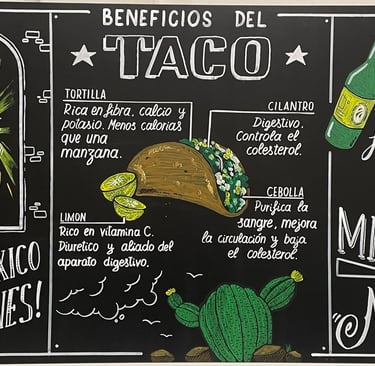 BENEFICIOS DEL
TACO
TORTILLA
Rica en fibra, calcio y
potasio. Menos calorias
que una
manzana.
CILANTRO
Digestivo.
Controla el
colesterol.
LIMON
Rico en vitamina C.
Diuretico y aliado del
aparato digestivo.
CEBOLLA
Purifica la
sangre, mejora
la circulación y baja
el colesterol.
XICO
NES!